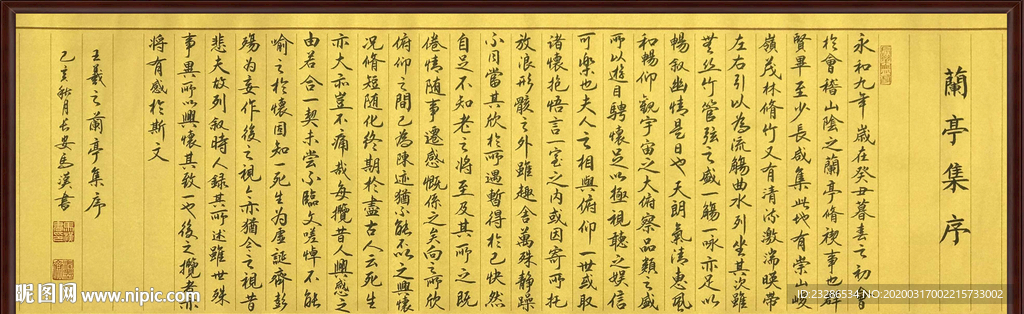 蘭亭集序
永和九年歲在癸丑暮春之初會
於會稽山陰之蘭亭脩禊事也群
賢畢至少長咸集此地有崇山峻
嶺茂林脩竹又有清流激湍暎帶
左右引以為流觴曲水列坐其次雖
無絲竹管弦之盛一觴一詠亦足以
暢叙幽情是日也天朗氣清惠風
和暢仰觀宇宙之大俯察品類之盛
所以遊目騁懷足以極視聽之娛信
可樂也夫人之相與俯仰一世或取
諸懷抱悟言一室之內或因寄所托
放浪形骸之外雖趣舍萬殊靜躁
不同當其欣於所遇暫得於己快然
自足不知老之將至及其所之既
倦情隨事遷感慨係之矣向之所欣
俯仰之間已為陳迹猶不能不以之興懷
況脩短隨化終期於盡古人云死生
亦大矣豈不痛哉每攬昔人興感之
由若合一契未嘗不臨文嗟悼不能
喻之於懷固知一死生為虛誕齊彭
殤為妄作後之視今亦猶今之視昔
悲夫故列叙時人錄其所述雖世殊
事異所以興懷其致一也後之攬者亦
將有感於斯文
王羲之蘭亭集序
己亥秋月長安馬漢書
昵图网 www.nipic.com
ID:23286534 NO:20200317002215733002